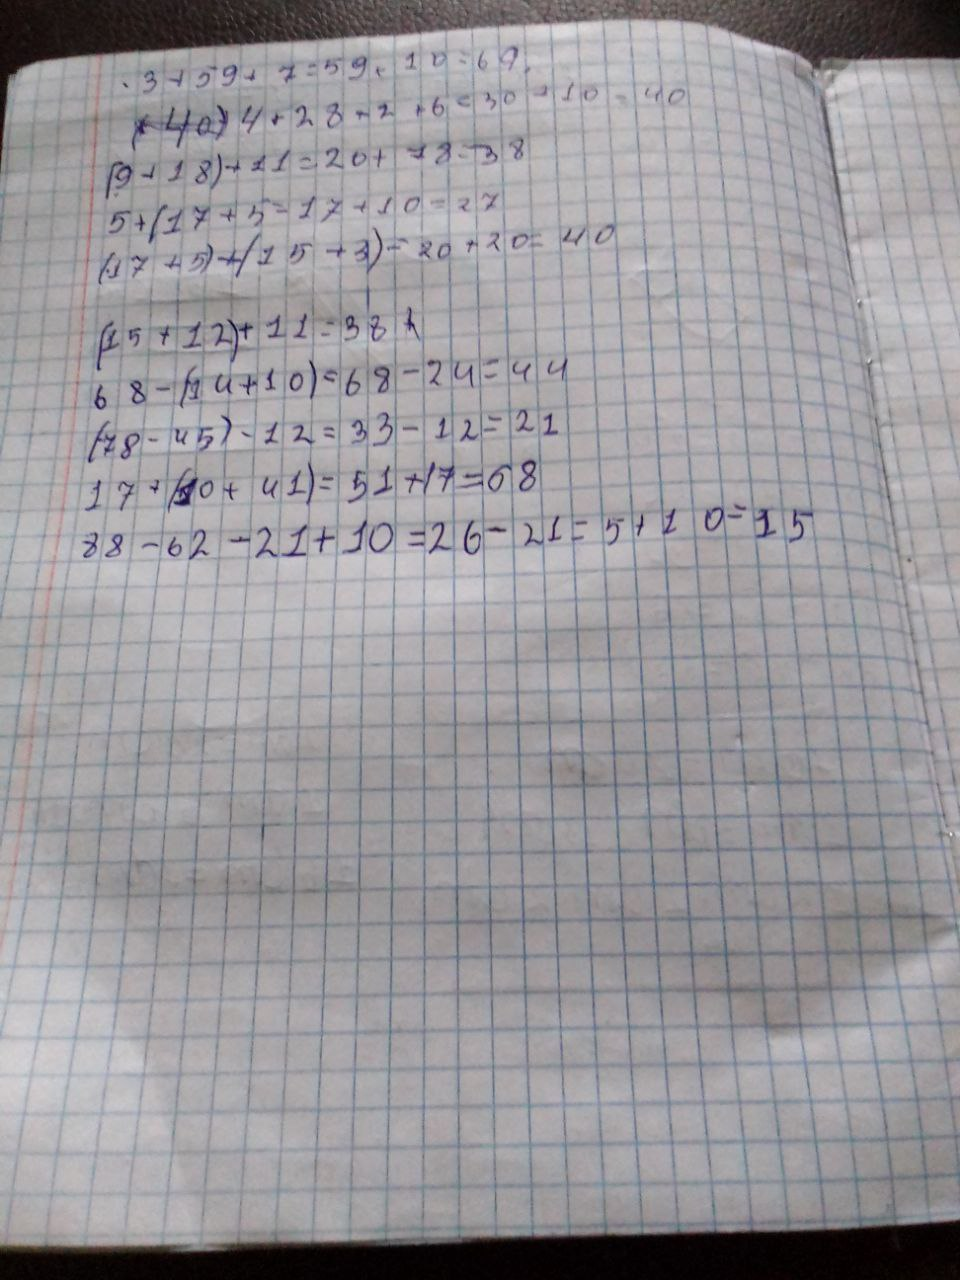 3+59+7=59+10=69.
(40) 4+28+2+6=30+10=40
(9+18)+11=20+18=38
5+(17+5=17+10=27
(17+5)+(15+3)=20+20=40
(15+12)+11=38
68-(14+10)=68-24=44
(78-45)-12=33-12=21
17+(10+41)=51+17=68
88-62-21+10=26-21=5+10=15